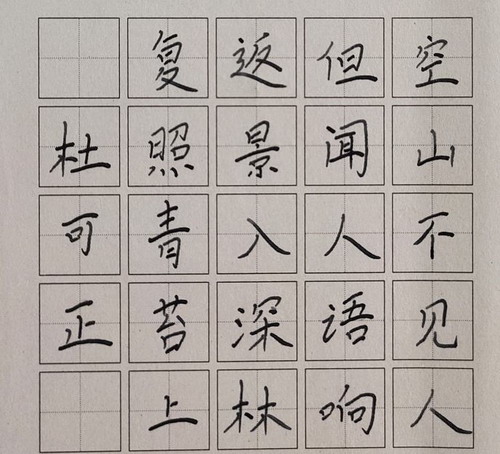 空山不见人
但闻人语响
返景入深林
复照青苔上
杜可正